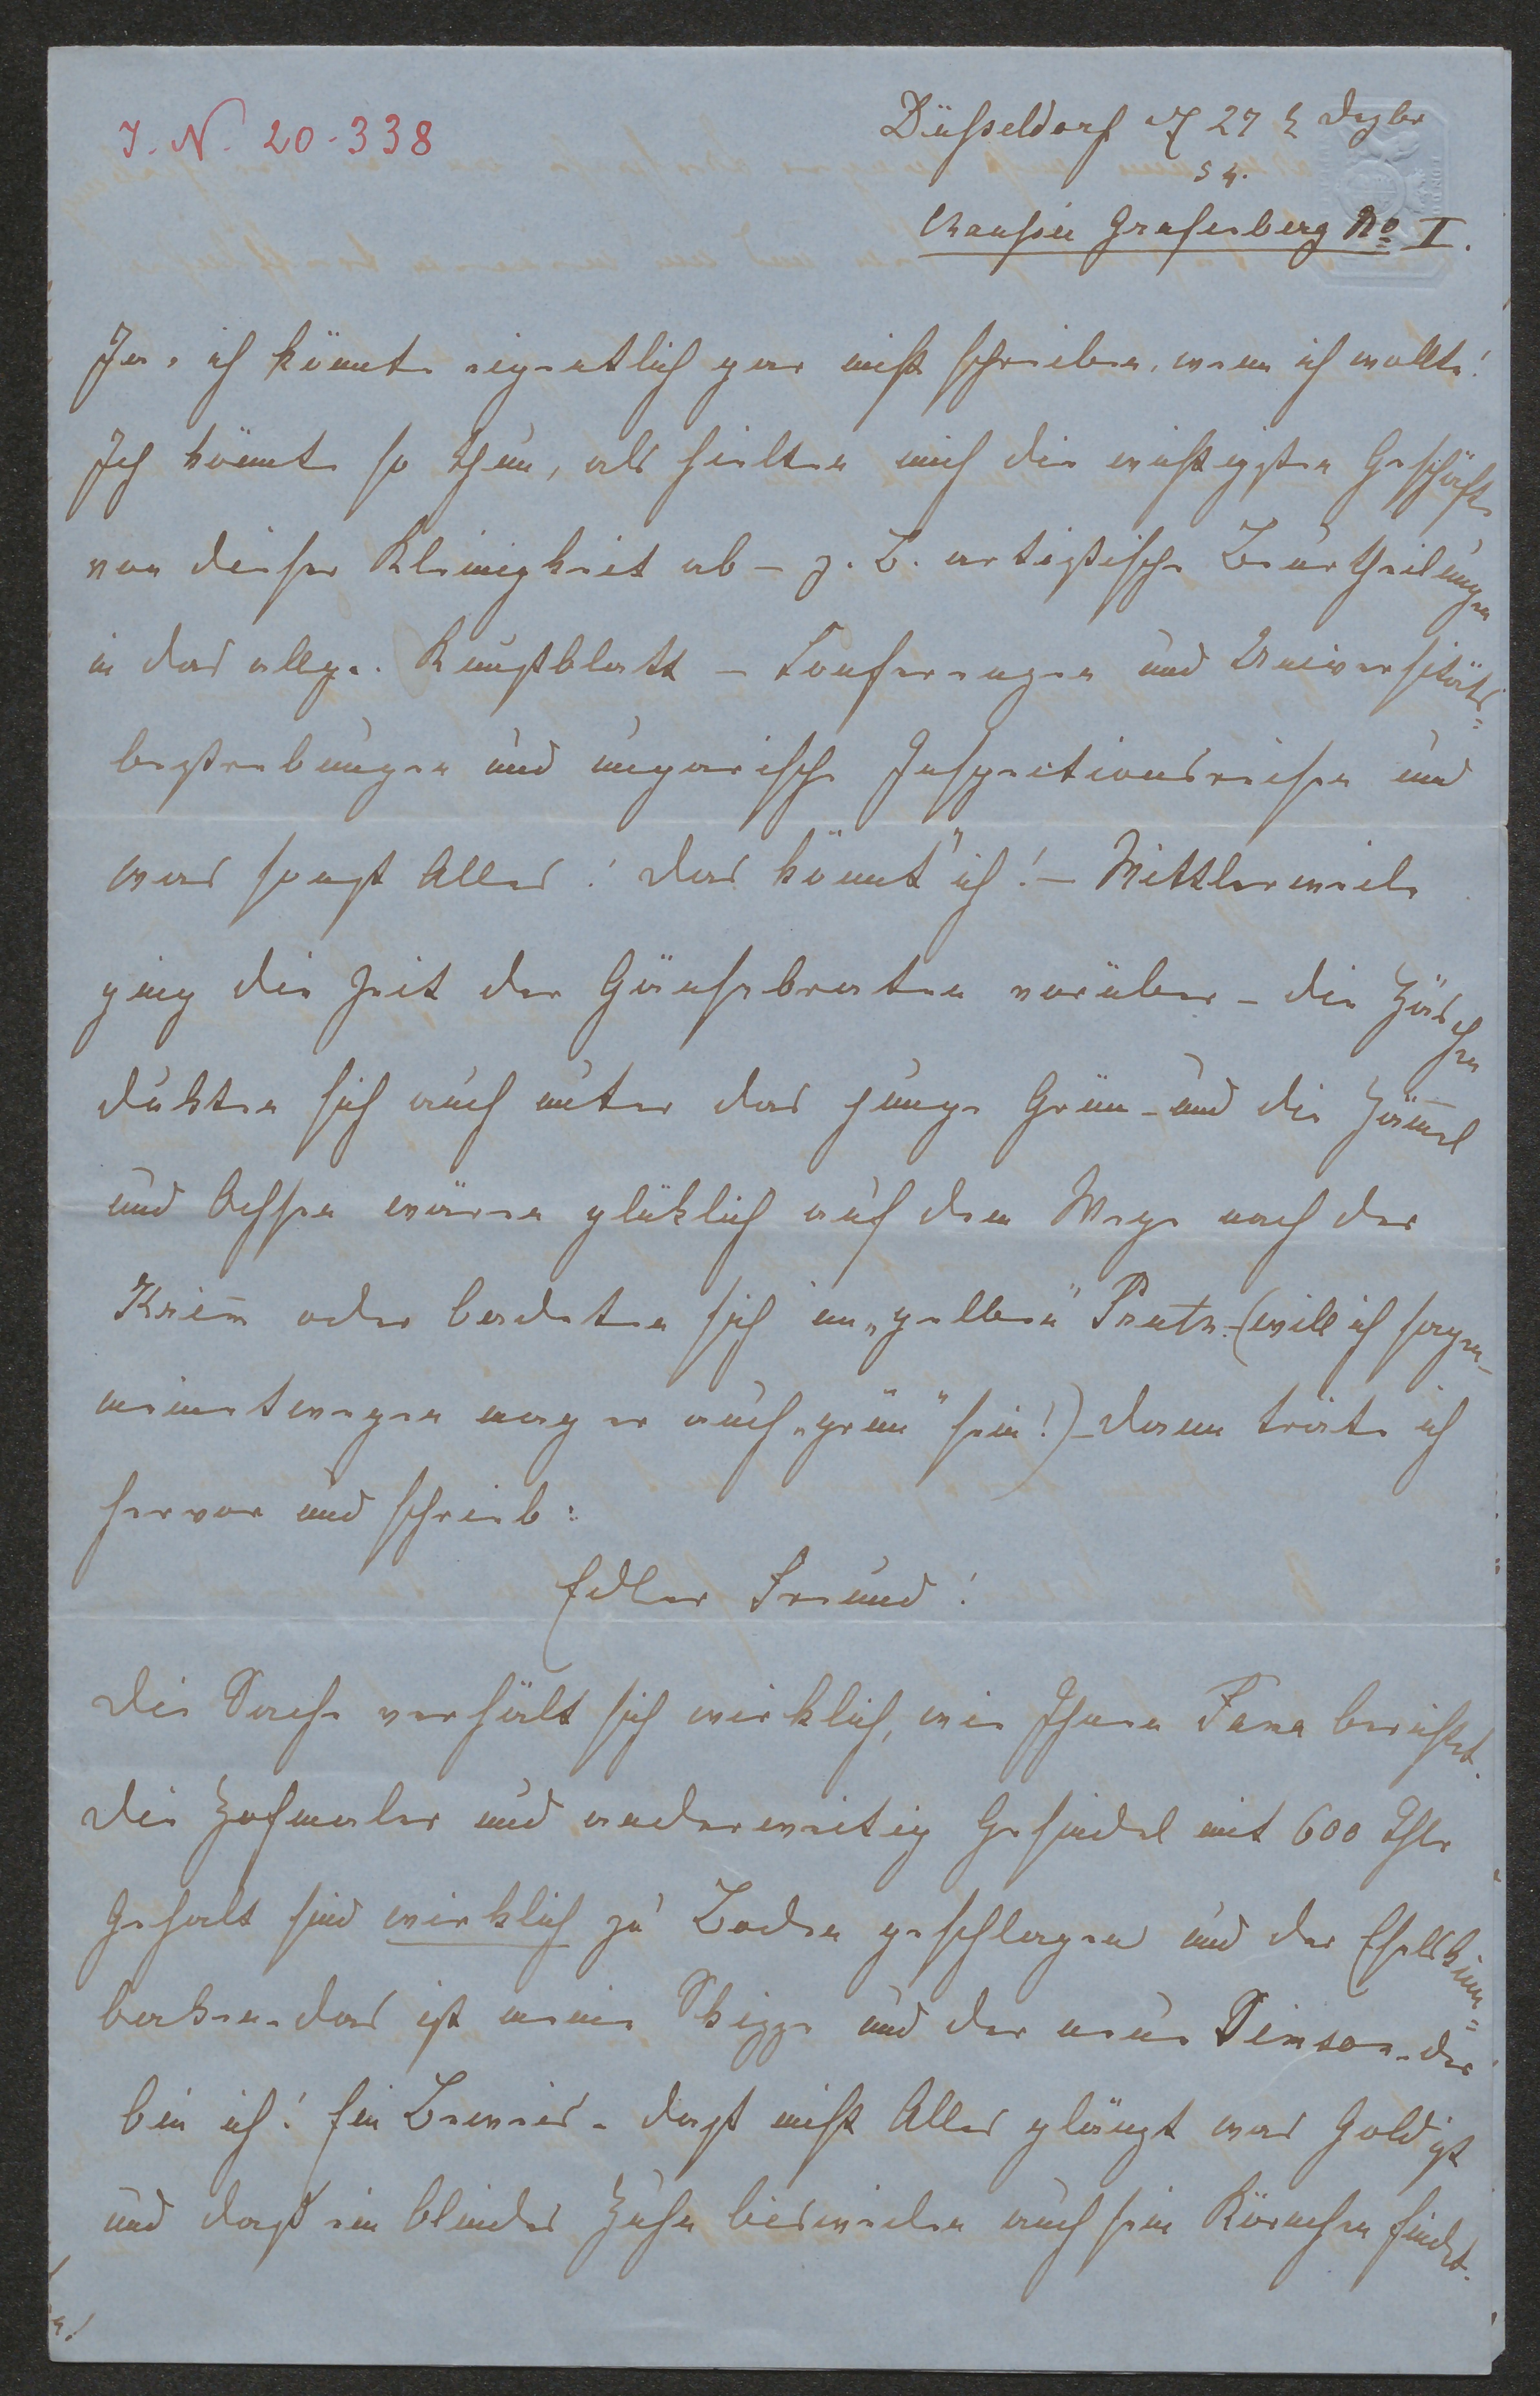 J. N. 20-338
Düsseldorf 27 Dezbr
54.
Chaussee Grafenberg No I.
Ja, ich könnte eigentlich gar nicht schreiben, wenn ich wollte!
Ich könnte so thun, als hielten mich die wichtigsten Geschäfte
von dieser Kleinigkeit ab – z. B. artistische Beurtheilungen
in das allge. Kunstblatt – Conferenzen und Universitäts=
bestrebungen und ungarische Inspectionsreisen und
was sonst Alles! das könnt' ich! – Mittlerweile
ging die Zeit der Gänsebraten vorüber – die Häschen
dukten sich auch unter das junge Grün – und die Hämel
und Ochsen wären glüklich auf dem Wege nach der
Krim oder badeten sich im „gelben" Pruth. (will ich sagen –
meinetwegen mag er auch „grün" sein!) – dann träte ich
hervor und schrieb:
Edler Freund!
Die Sache verhält sich wirklich, wie Ihnen Fama berichtet.
Die Hofmaler und anderweitig Gesindel mit 600 Thlr
Gehalt sind wirklich zu Boden geschlagen und der Eselskinn=
baken – das ist meine Skizze und der neue Simson – der
bin ich! Ein Beweis – dass nicht Alles glänzt was Gold ist
und dass ein blindes Huhn bisweilen auch sein Körnchen findet.